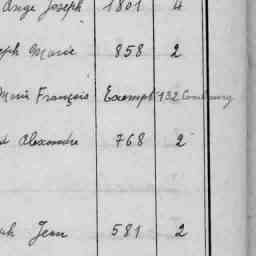 Ange Joseph 1801 4
eph Marie 858 2
Marie François Exempt 132 Combourg
d Alexandre 768 2
ph Jean 581 2